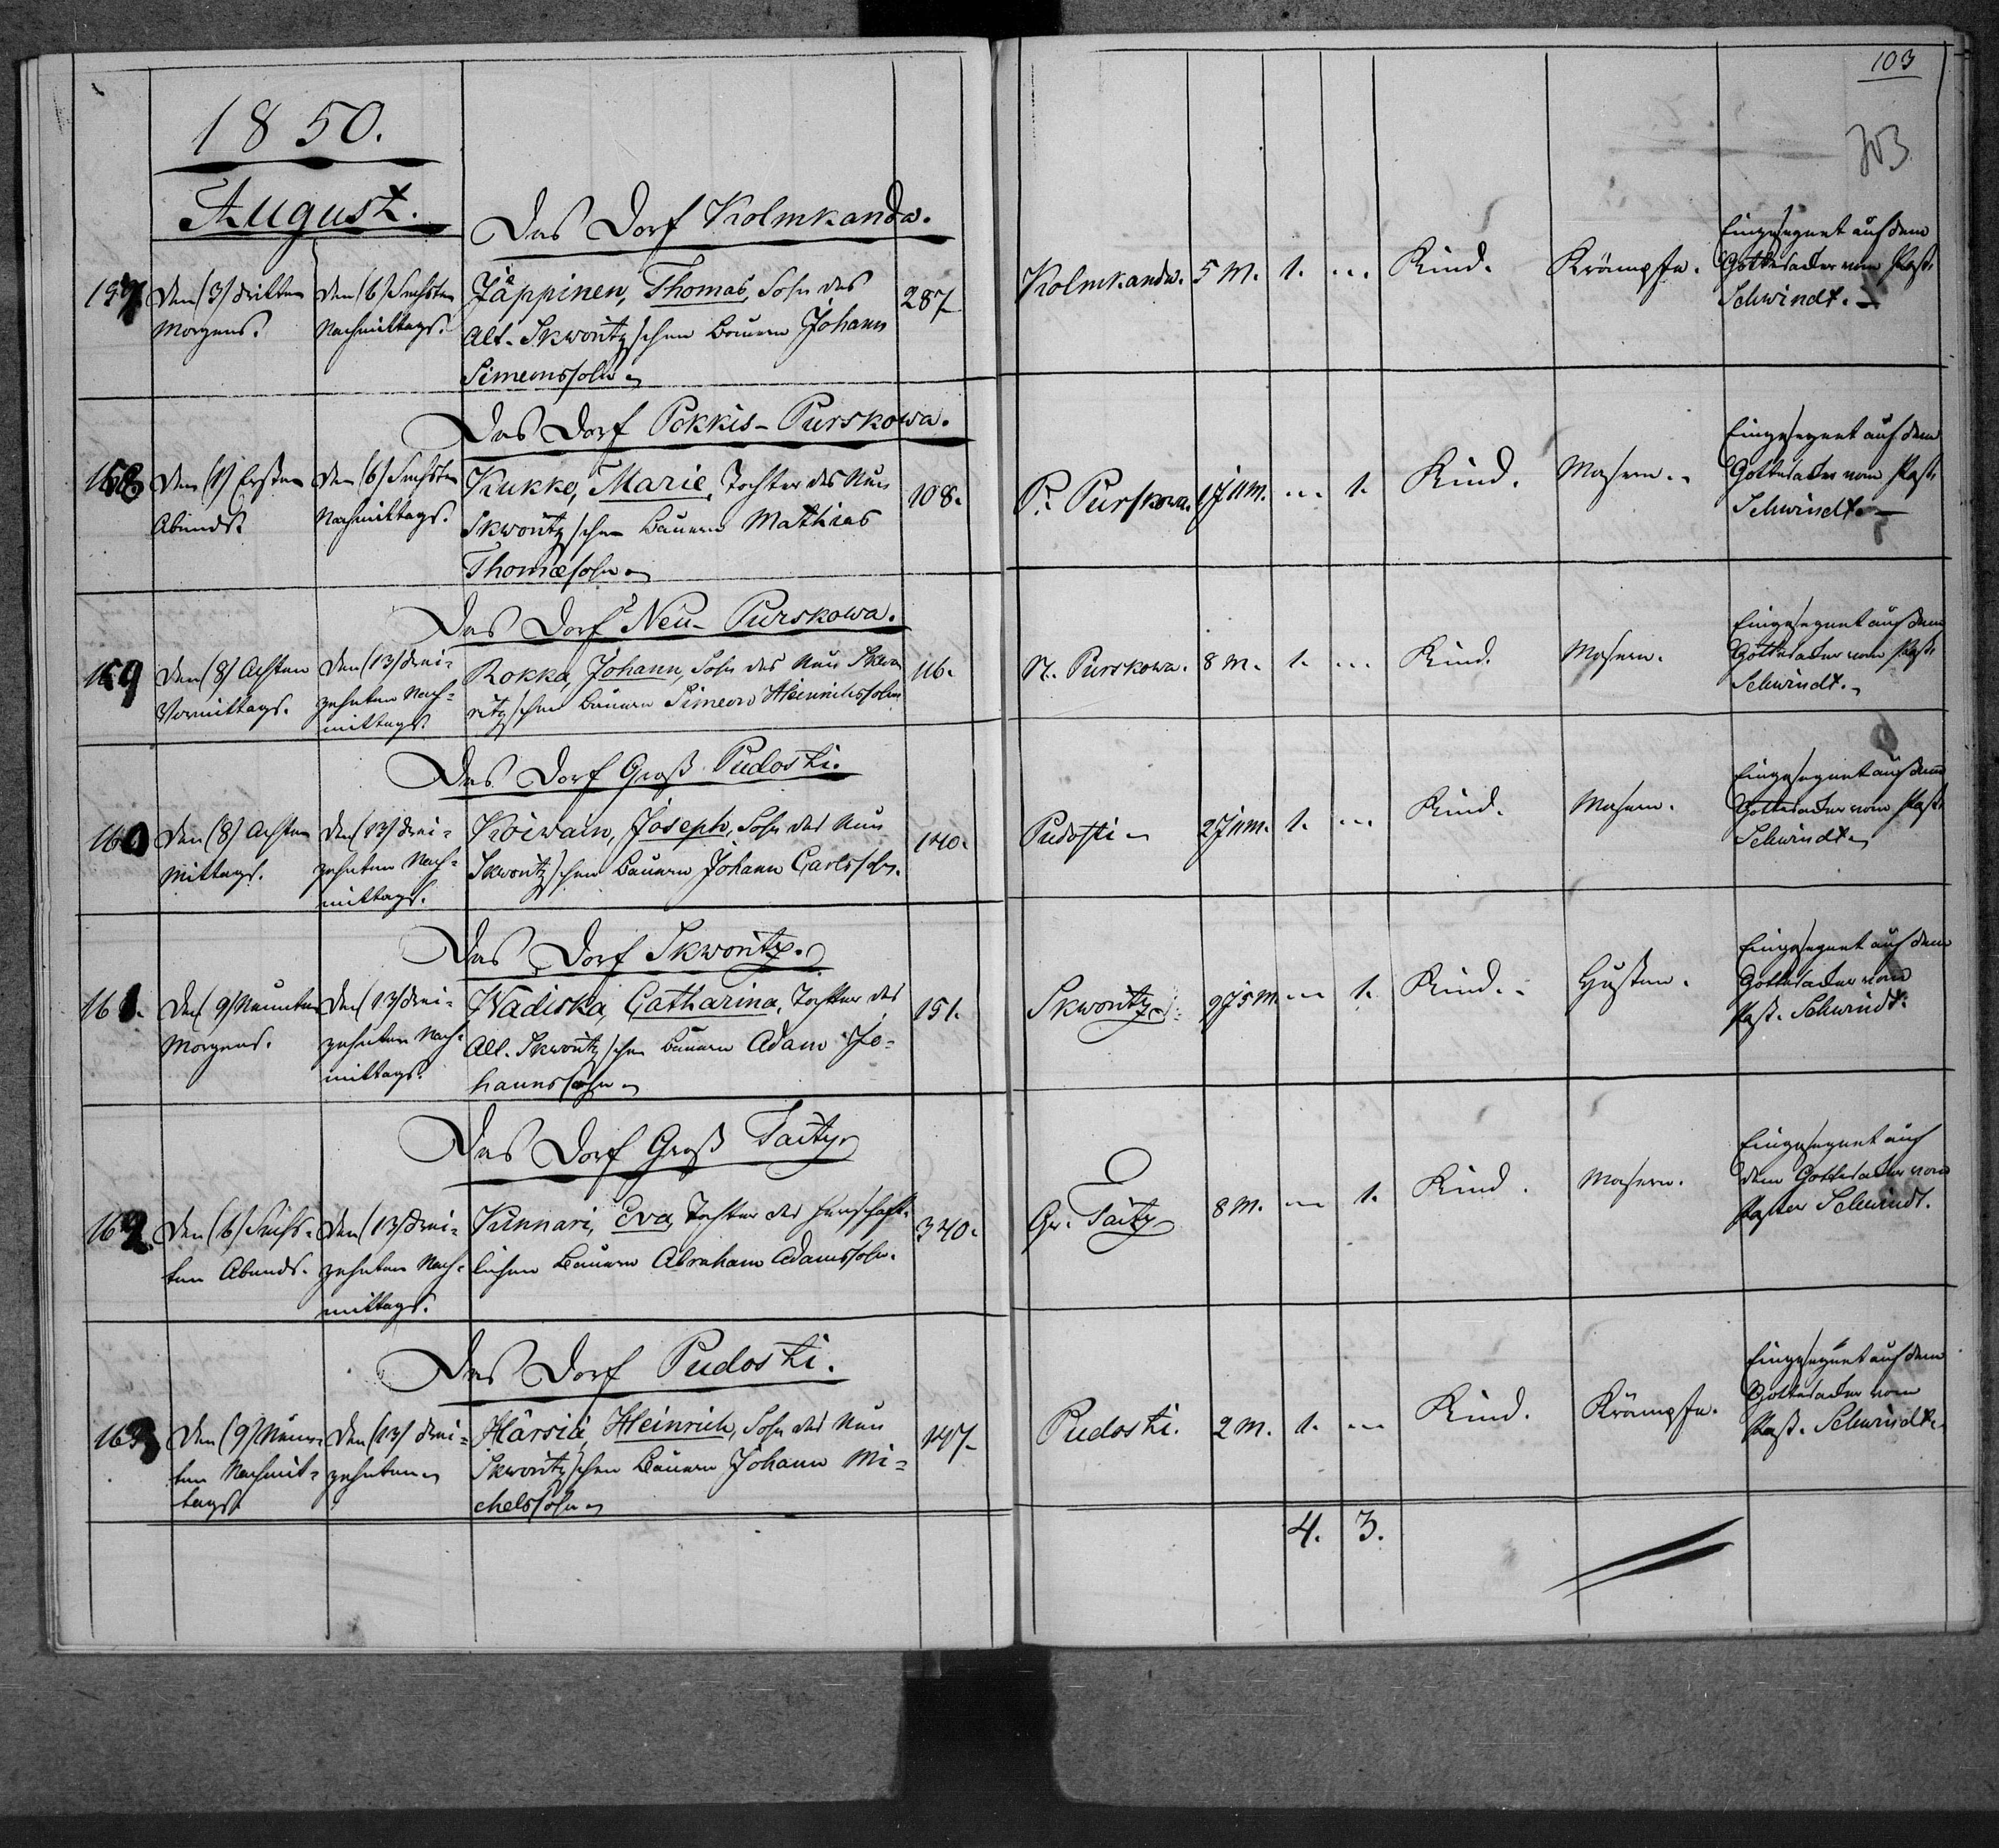 103
203
1850.
August.
Das Dorf Kolmkanda.
157
Den (3) dritten
Morgens.
Den (6) Sechsten
Nachmittags.
Jäppinen, Thomas, Sohn des
Alt-Skworitzschen Bauern Johann
Simeonssohn
287
Kolmkanda. 5 M. 1. ... Kind. Krämpfe.
Eingesegnet auf dem
Gottesacker vom Past.
Schwindt.
Das Dorf Pokkis-Purskowa.
158
Den (1) Ersten
Abends.
Den (6) Sechsten
Nachmittags.
Kukko, Marie, Tochter des Neu
Skworitzschen Bauern Mathias
Thomæsohn
108.
P. Purskowa. 1J 11M. ... 1. Kind. Masern.
Eingesegnet auf dem
Gottesacker vom Past.
Schwindt.
Das Dorf Neu-Purskowa.
159
Den (8) Achten
Vormittags.
Den (13) drei-
zehnten Nach-
mittags.
Rokka, Johann, Sohn des Neu Skwo
ritzschen Bauern Simeon Heinrichssohn
116.
N. Purskowa. 8 M. 1. ... Kind. Masern.
Eingesegnet auf dem
Gottesacker vom Past.
Schwindt.
Das Dorf Groß Pudosti.
160
Den (8) Achten
Mittags.
Den (13) drei-
zehnten Nach-
mittags.
Koiwain, Joseph, Sohn des Neu
Skworitzschen Bauern Johann Carlssohn.
140.
Pudosti 2J 11M. 1. ... Kind. Masern.
Eingesegnet auf dem
Gottesacker vom Past.
Schwindt
Das Dorf Skworitz.
161.
Den (9) Neunten
Morgens.
Den (13) drei-
zehnten Nach-
mittags.
Wadiska, Catharina, Tochter des
Alt. Skworitzschen Bauern Adam Jo-
hannssohn
151.
Skworitz 9J 5M ... 1. Kind. Husten.
Eingesegnet auf dem
Gottesacker vom
Past. Schwindt.
Das Dorf Groß Taitz
162.
Den (6) Sechs-
ten Abends.
Den (13) drei-
zehnten Nach-
mittags.
Kunnari, Eva, Tochter des herrschaft-
lichen Bauern Abraham Adamssohn.
340.
Gr. Taitz 8 M. ... 1. Kind. Masern.
Eingesegnet auf
dem Gottesacker vom
Pastor Schwindt.
Das Dorf Pudosti.
163
Den (9) Neun-
ten Nachmit-
tags.
Den (13) drei-
zehnten
Härsiä, Heinrich, Sohn des Neu
Skworitzschen Bauern Johann Mi-
chelssohn
147
Pudosti. 2 M. 1. ... Kind. Krämpfe.
Eingesegnet auf dem
Gottesacker vom
Past. Schwindt.
4. 3.